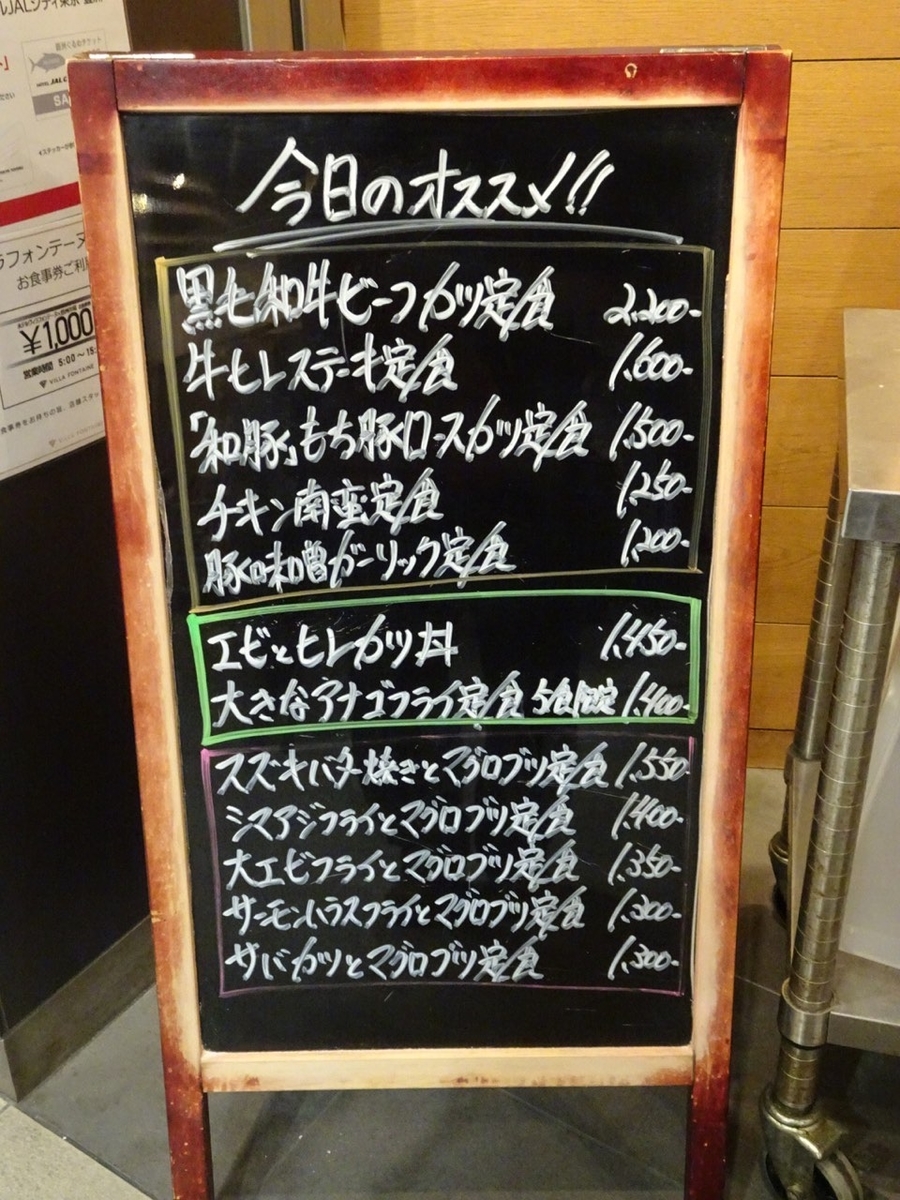 ルJALシティ東京 豊洲
SA
ラフォンテーヌ
お食事券ご利用
¥1,000
営業時間 5:00~15:
VILLA FONTAINE
今日のオススメ!!
黒毛和牛ビーフカツ定食 2,200-
牛ヒレステーキ定食 1,600-
「和豚」もち豚ロースカツ定食 1,500-
チキン南蛮定食 1,250-
豚味噌ガーリック定食 1,200-
エビとヒレカツ丼 1,450-
大きなアナゴフライ定食 5食限定 1,400-
スズキバター焼きとマグロブツ定食 1,550-
シマアジフライとマグロブツ定食 1,400-
大エビフライとマグロブツ定食 1,350-
サーモンハラスフライとマグロブツ定食 1,300-
サバカツとマグロブツ定食 1,300-